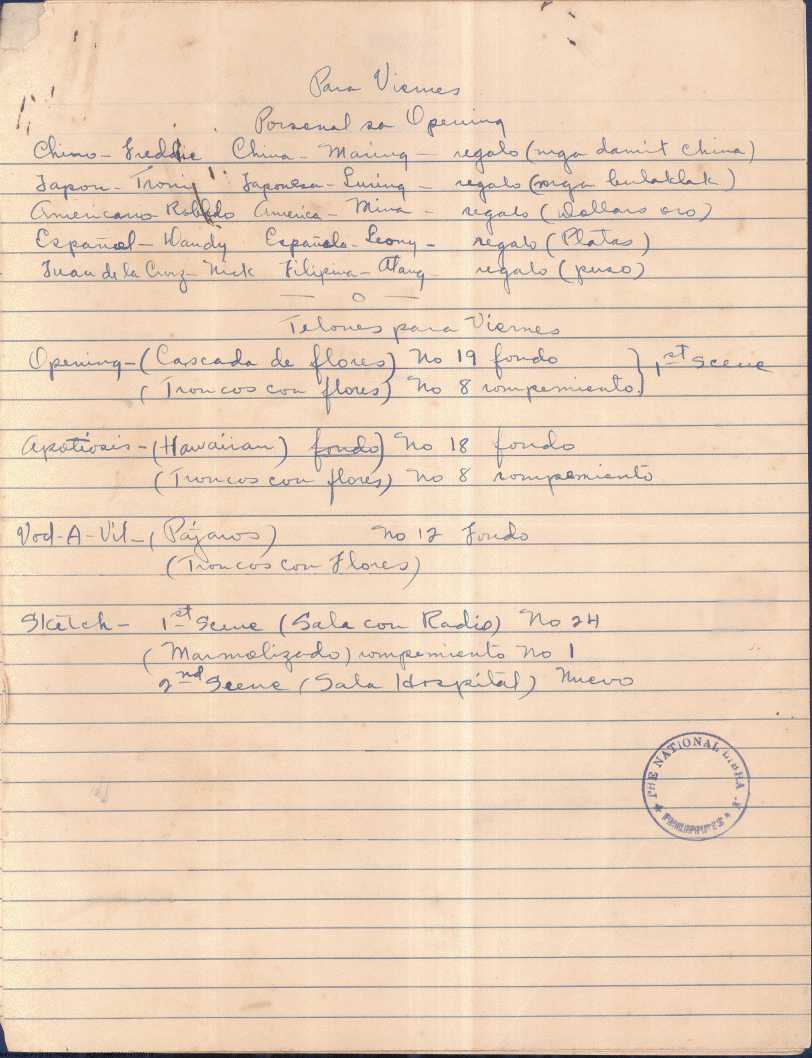 Para Viernes
Personal sa Opening
Chino - Freddie China - Maring - regalo (mga damit china)
Japon - Trony Japonesa - Luring - regalo (mga bulaklak)
Americano Robledo America - Mina - regalo (Dollars oro)
Español - Wandy Española - Leony - regalo (Platas)
Juan de la Cruz - Nick Filipina - Atang - regalo (puso)
— O —
Telones para Viernes
Opening - (Cascada de flores) No 19 fondo
(Troncos con flores) No 8 rompemiento } 1st Scene
Apotiosis - (Hawaiian) fondo) No 18 fondo
(Troncos con flores) No 8 rompemiento
Vod-A-Vil - (Pájaros) No 12 Fondo
(Troncos con Flores)
Sketch - 1st Scene (Sala con Radio) No 24
(Marmolizado) rompemiento No 1
2nd Scene (Sala Hospital) Nuevo
THE NATIONAL LIBRARY
PHILIPPINES